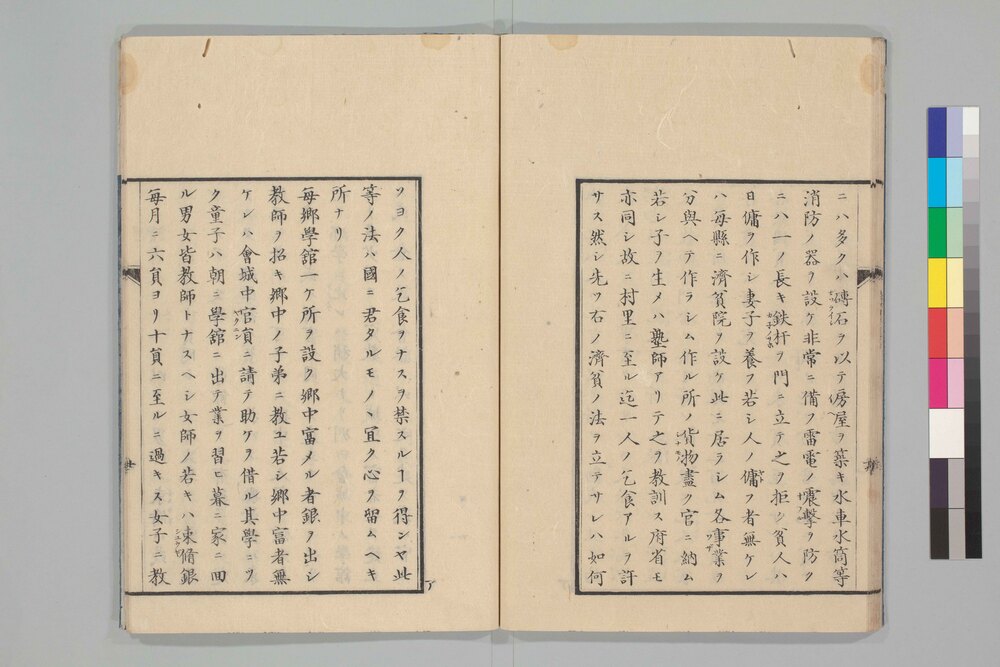 ニハ多クハ磚石ヲ以テ房屋ヲ築キ水車水筒等
消防ノ器ヲ設ケ非常ニ備フ雷電ノ震擊ヲ防ク
ニハ一ノ長キ鉄杆ヲ門ニ立テ之ヲ拒ク貧人ハ
日傭ヲ作シ妻子ヲ養フ若シ人ノ傭フ者無ケレ
ハ每縣ニ濟貧院ヲ設ケ此ニ居ラシム各事業ヲ
分與ヘテ作ラシム作ル所ノ貨物盡ク官ニ納ム
若シ子ヲ生メハ塾師アリテ之ヲ教訓ス府省モ
亦同シ故ニ村里ニ至ル迄一人ノ乞食アルヲ許
サス然シ先ツ右ノ濟貧ノ法ヲ立テサレハ如何
ソヨク人ノ乞食ヲナスヲ禁スルヿヲ得ンヤ此
等ノ法ハ國ニ君タルモノヽ宜ク心ヲ留ムヘキ
所ナリ
每鄉學館一ケ所ヲ設ク鄉中富メル者銀ヲ出シ
教師ヲ招キ鄉中ノ子弟ニ教ユ若シ鄉中富者無
ケレハ會城中官員ニ請テ助ケヲ借ル其學ニツ
ク童子ハ朝ニ學館ニ出テ業ヲ習ヒ暮ニ家ニ回
ル男女皆教師トナスヘシ女師ノ若キハ束脩銀
每月ニ六員ヨリ十員ニ至ルニ過キス女子ニ教